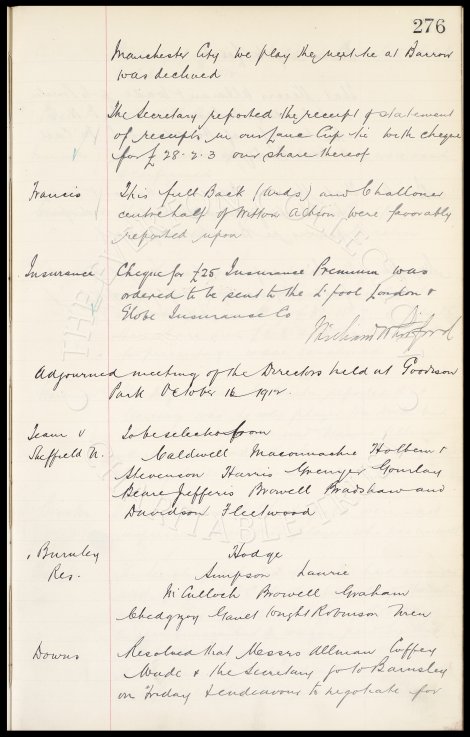 276
Manchester City we play the next tie at Barrow
was declined
The Secretary reported the receipt & statement
of receipts in our Lanc Cup tie with cheque
for £28.2.3 our share thereof
Francis This full Back (Wids) and Challoner
centre half of Witton Albion were favorably
reported upon
Insurance Cheque for £25 Insurance Premium was
ordered to be sent to the L'pool London &
Globe Insurance Co
Adjourned meeting of the Directors held at Goodison
Park October 16 1912.
Team v To be selected from
Sheffield U. Caldwell Maconnachie Holbem &
Stevenson Harris Grenyer Gourlay
Beare Jefferis Browell Bradshaw and
Davidson Fleetwood
" Burnley Hodge
Res. Simpson Laurie
McCulloch Browell Graham
Chedgzoy Gault Wright Robinson Uren
Downs Resolved that Messrs Allman Coffey
Wade & the Secretary go to Barnsley
on Friday & endeavour to negotiate for